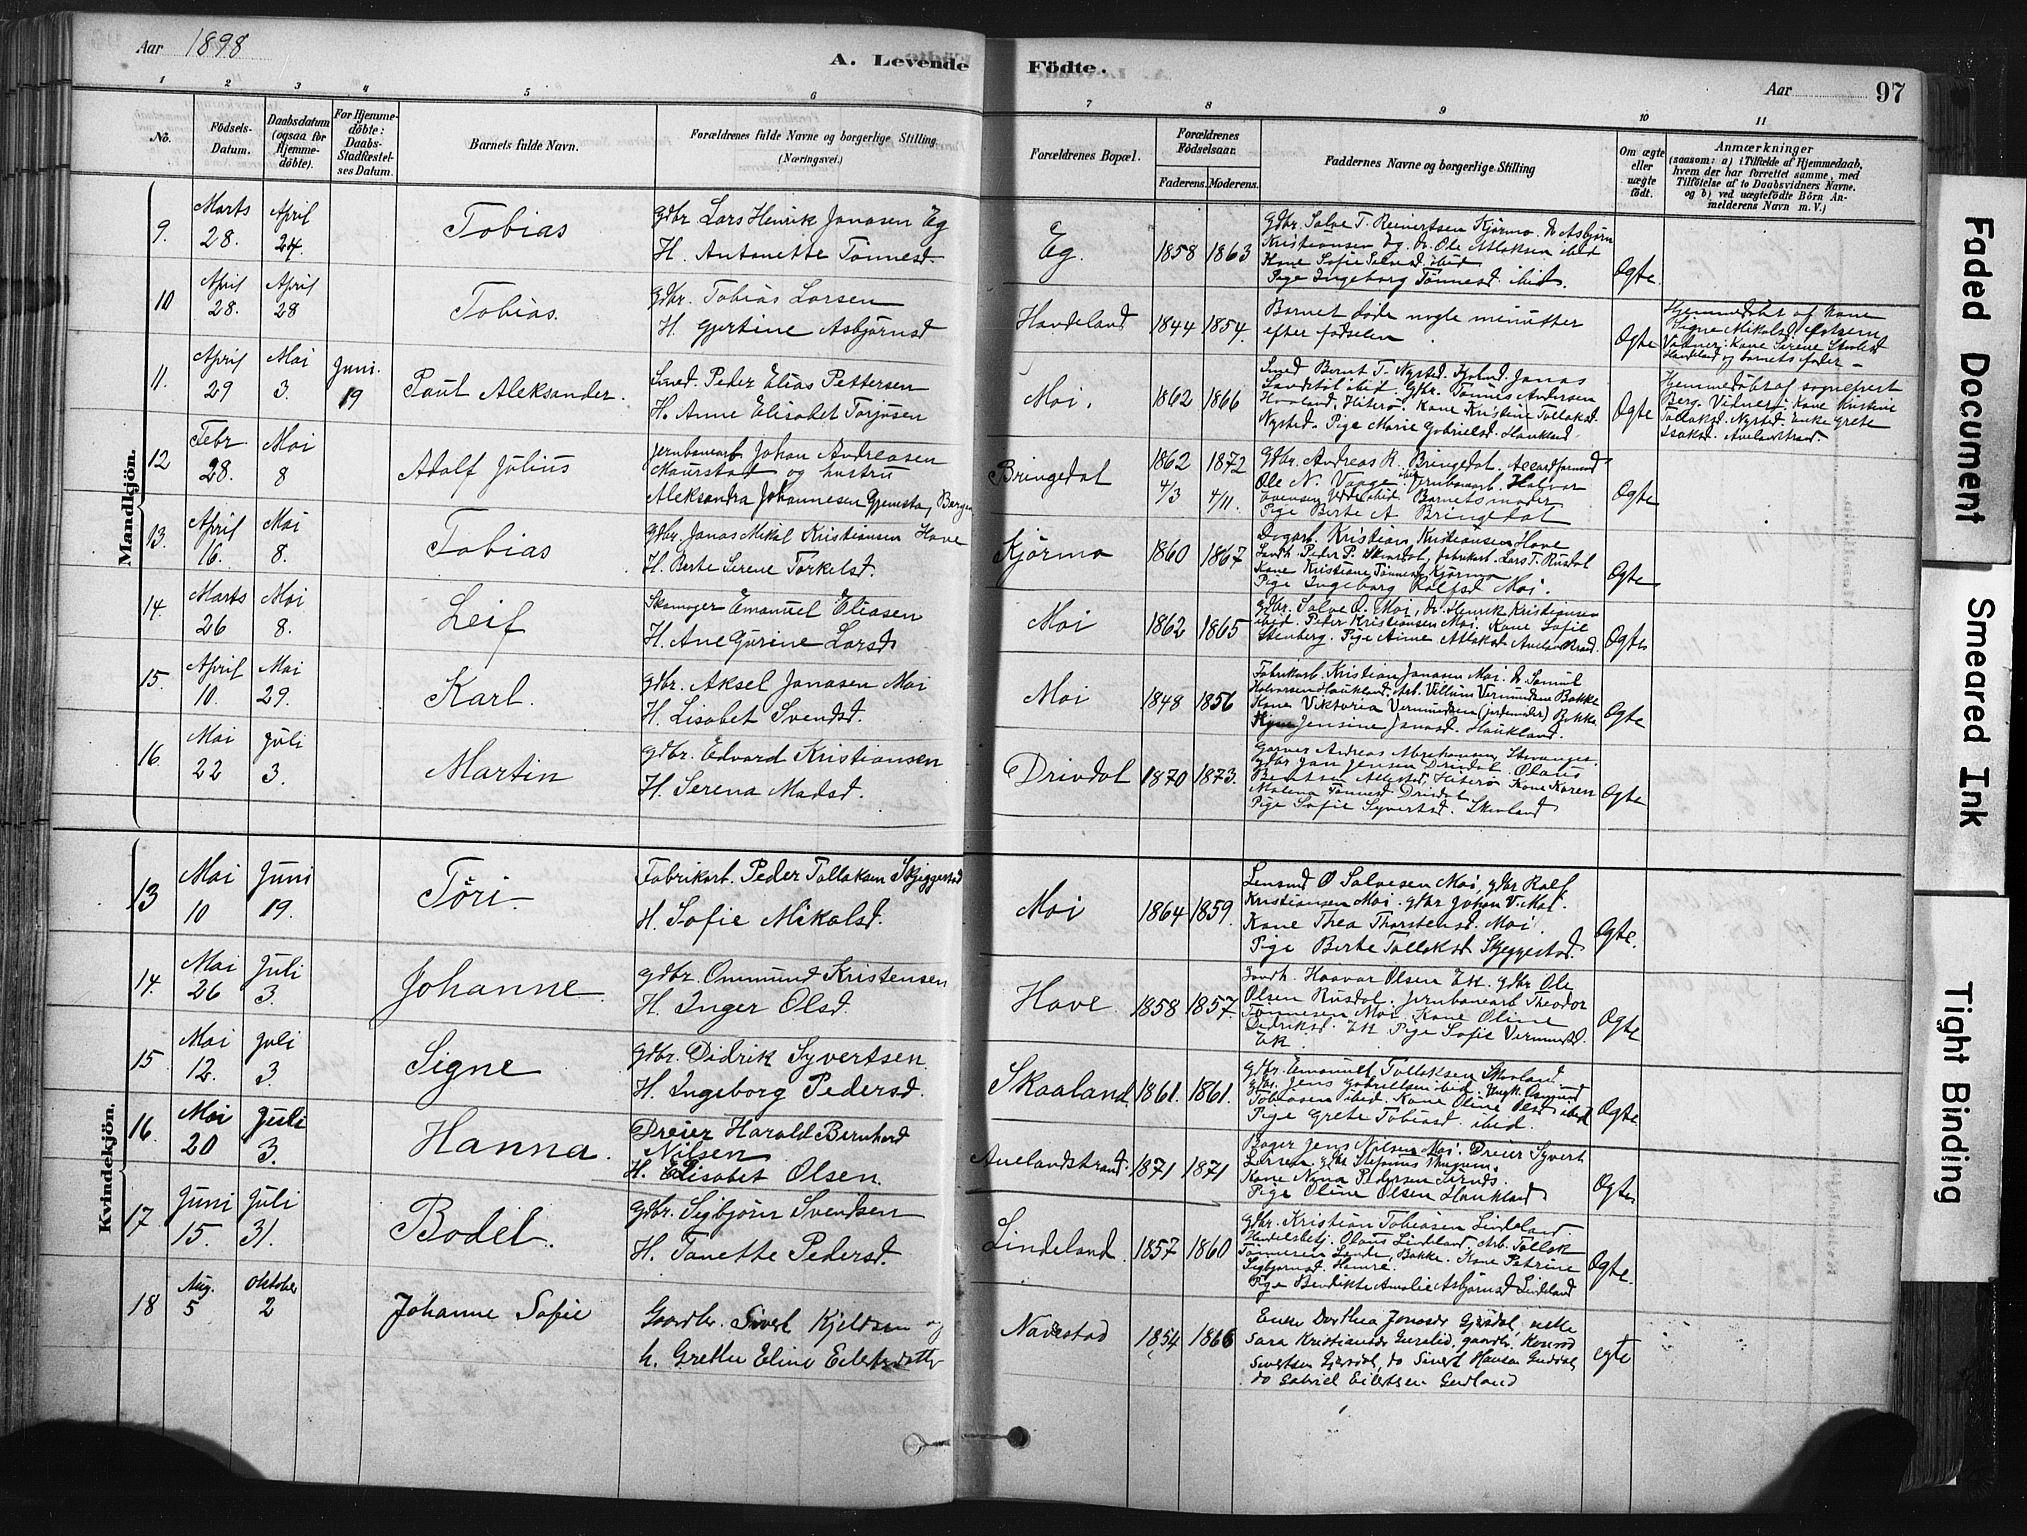 Aar 1898
A. Levende Födte.
Aar 97
1 2 3 4 5 6 7 8 9 10 11
No.
Födsels-Datum.
Daabsdatum (ogsaa for Hjemme-döbte).
For Hjemme-döbte: Daabs-Stadfæstel-ses Datum.
Barnets fulde Navn.
Forældrenes fulde Navne og borgerlige Stilling (Næringsvei.)
Forældrenes Bopæl.
Forældrenes Födselsaar.
Faderens. Moderens.
Faddernes Navne og borgerlige Stilling
Om ægte eller uægte födt.
Anmærkninger
(saasom: a) i Tilfælde af Hjemmedaab,
hvem der har forrettet samme, med
Tilföielse af to Daabsvidners Navne.
og b) ved uægtefödte Börn An-
melderens Navn m. V.)
Mandkjön.
9. Marts 28. April 24. Tobias
Gdbr. Lars Henrik Jonasen Eg
H. Antonette Tønnesd.
Eg. 1858 1863
Gdbr. Salve T. Reinertsen Kjörmo. Do Asbjörn
Kristiansen Eg. Do. Ole Atlaksen ibid
Kone Sofie Salvesd. ibid
Pige Ingeborg Tønnesd. ibid.
Ogte
10 April 28. April 28 Tobias.
Gdbr. Tobias Larsen
H. Gjertine Asbjørnsd
Haudeland 1844 1854.
Barnet døde nogle minutter
efter fødselen.
Ogte
Hjemmedøbt af Kone
Signe Mikalsd
Vidner: Kone Serene
Haudeland og barnets fader
11. April 29 Mai 3. Juni 19 Paul Aleksander.
Smed. Peder Elias Pettersen
H. Anne Elisabet Torjusen
Moi. 1862 1866
Smed Bernt T. Nysted. Jonas
ibid. Gdbr. Tønnes Andersen
Haaland, Hiterø. Kone Kristine Tollaksd.
Nysted. Pige Marie Gabrielsd. Haukland.
Ogte
Hjemmedøbt af sogneprest
Berg. Vidner: Kone Kristine
Tollaksd. Nysted. Enke Grete
Isaksd. Auelandstrand.
12 Febr 28. Mai 8 Adolf Julius
Jernbanearb Johan Andreasen
Maurstad og hustru
Aleksandra Johannesen Gjemstø, Bergen
Bringedal 1862 4/3 1872 4/11.
Gdbr. Andreas R. Bringedal. Accordformand
Ole N. Vaage ibid Jernbanearb. Halvor
Evensen ibid. Barnets moder
Pige Berte A. Bringedal
Ogte
13. April 16. Mai 8. Tobias
Gdbr. Jonas Mikal Kristiansen Hove
H. Berte Serene Torkelsd.
Kjørmo 1860 1867
Dagarb. Kristian Kristiansen Hove
Landh. Peder P. Skaardal, fabrikarb. Lars T. Rusdal
Kone Kristiane Tønnesd. Kjörmo
Pige Ingeborg Rolfsd Moi.
Ogte
14. Marts 26 Mai 8. Leif
Skomager Emanuel Eliasen
H. Ane Gurine Larsd
Moi 1862 1865
Gdbr. Salve O. Moi, Do. Henrik Kristiansen
ibid. Peder Kristiansen Moi. Kone Sofie
Stenberg. Pige Anne Atlaksd Auelandstrand.
Ogte
15. April 10. Mai 29. Karl.
Gdbr. Aksel Jonasen Moi
H. Lisabet Svendsd.
Moi 1848 1856
Fabrikarb. Kristian Jonasen Moi. Do Samuel
Halvorsen Haukland. Arb. Villum Vermundsen Bakke
Kone Viktoria Vermundsen (jordemoder) Bakke
Jensine Jonasd. Haukland.
Ogte
16. Mai 22 Juli 3. Martin
Gdbr. Edvard Kristiansen
H. Serena Madsd.
Drivdal 1870 1873.
Garver Andreas Abrahamsen, Stavanger.
Gdbr Jan Jensen Drivdal. Olaus
Berntsen, Hiterø Kone Karen
Malena Tønnesd Drivdal
Pige Sofie Syvertsd.
Ogte
Kvindekjön.
13 Mai 10 Juni 19. Töri.
Fabrikarb. Peder Tollaksen Skjeggestad
H. Sofie Mikalsd.
Moi 1864 1859.
Lensmd O Salvesen Moi, gdbr Rolf
Kristiansen Moi. gdbr Johan V. Moi.
Kone Thea Thorstensd. Moi.
Pige Berte Tollaksd Skjeggestad.
Ogte.
14. Mai 26 Juli 3. Johanne.
Gdbr. Ommund Kristensen
H. Inger Olsd.
Hove 1858 1857.
Landh. Haavar Olsen Ek. gdbr Ole
Olsen Rusdal. Jernbanearb Theodor
Tønnesen Moi. Kone Oline
Didriksd. Ek Pige Sofie Vermundsd.
Ek.
Ogte
15 Mai 12. Juli 3. Signe
Gdbr. Didrik Syvertsen.
H. Ingeborg Pedersd.
Skaaland. 1861. 1861.
Gdbr. Emanuel Tollaksen Skaaland
gdbr. Jens Gabrielsen ibid. Ungk. Osmund
Tobiasen ibid. Kone Oline Olsd ibid
Pige Grete Tobiasd. ibid.
Ogte
16. Mai 20 Juli 3. Hanna.
Dreier Harald Bernhard
Nilsen
H. Elisabet Olsen.
Auelandstrand. 1871 1871
Bager Jens Nilsen Moi. Dreier Syvert
Larsen. gdbr Stefanus
Kone Nana Pedersen Sirnes.
Pige Oline Olsen Haukland
Ogte
17 Juni 15. Juli 31. Bodel.
Gdbr. Sigbjörn Svendsen
H. Tanette Pedersd.
Lindeland. 1857 1860
Gdbr. Kristian Tobiasen Lindeland.
Handelsbetj. Olaus Lindeland. Arb. Tollak
Tønnesen Lande, Bakke. Kone Petrine
Sigbjørnsd. Hamre.
Pige Bendikte Amalie Asbjørnsd Lindeland
Ogte.
18 Aug. 5 Oktober 2 Johanne Sofie
Gaardbr. Sivert Kjeldsen og
h. Grethe Eline Eilertsdatter
Navestad 1854 1866
Enke Dorthea Jonasdr Gjesdal, enke
Sara Kristiansdr, gaardbr. Konrad
Sivertsen Gjesdal, do Sivert Hansen
do Gabriel Eilertsen Gudland
egte
Faded Document
Smeared Ink
Tight Binding